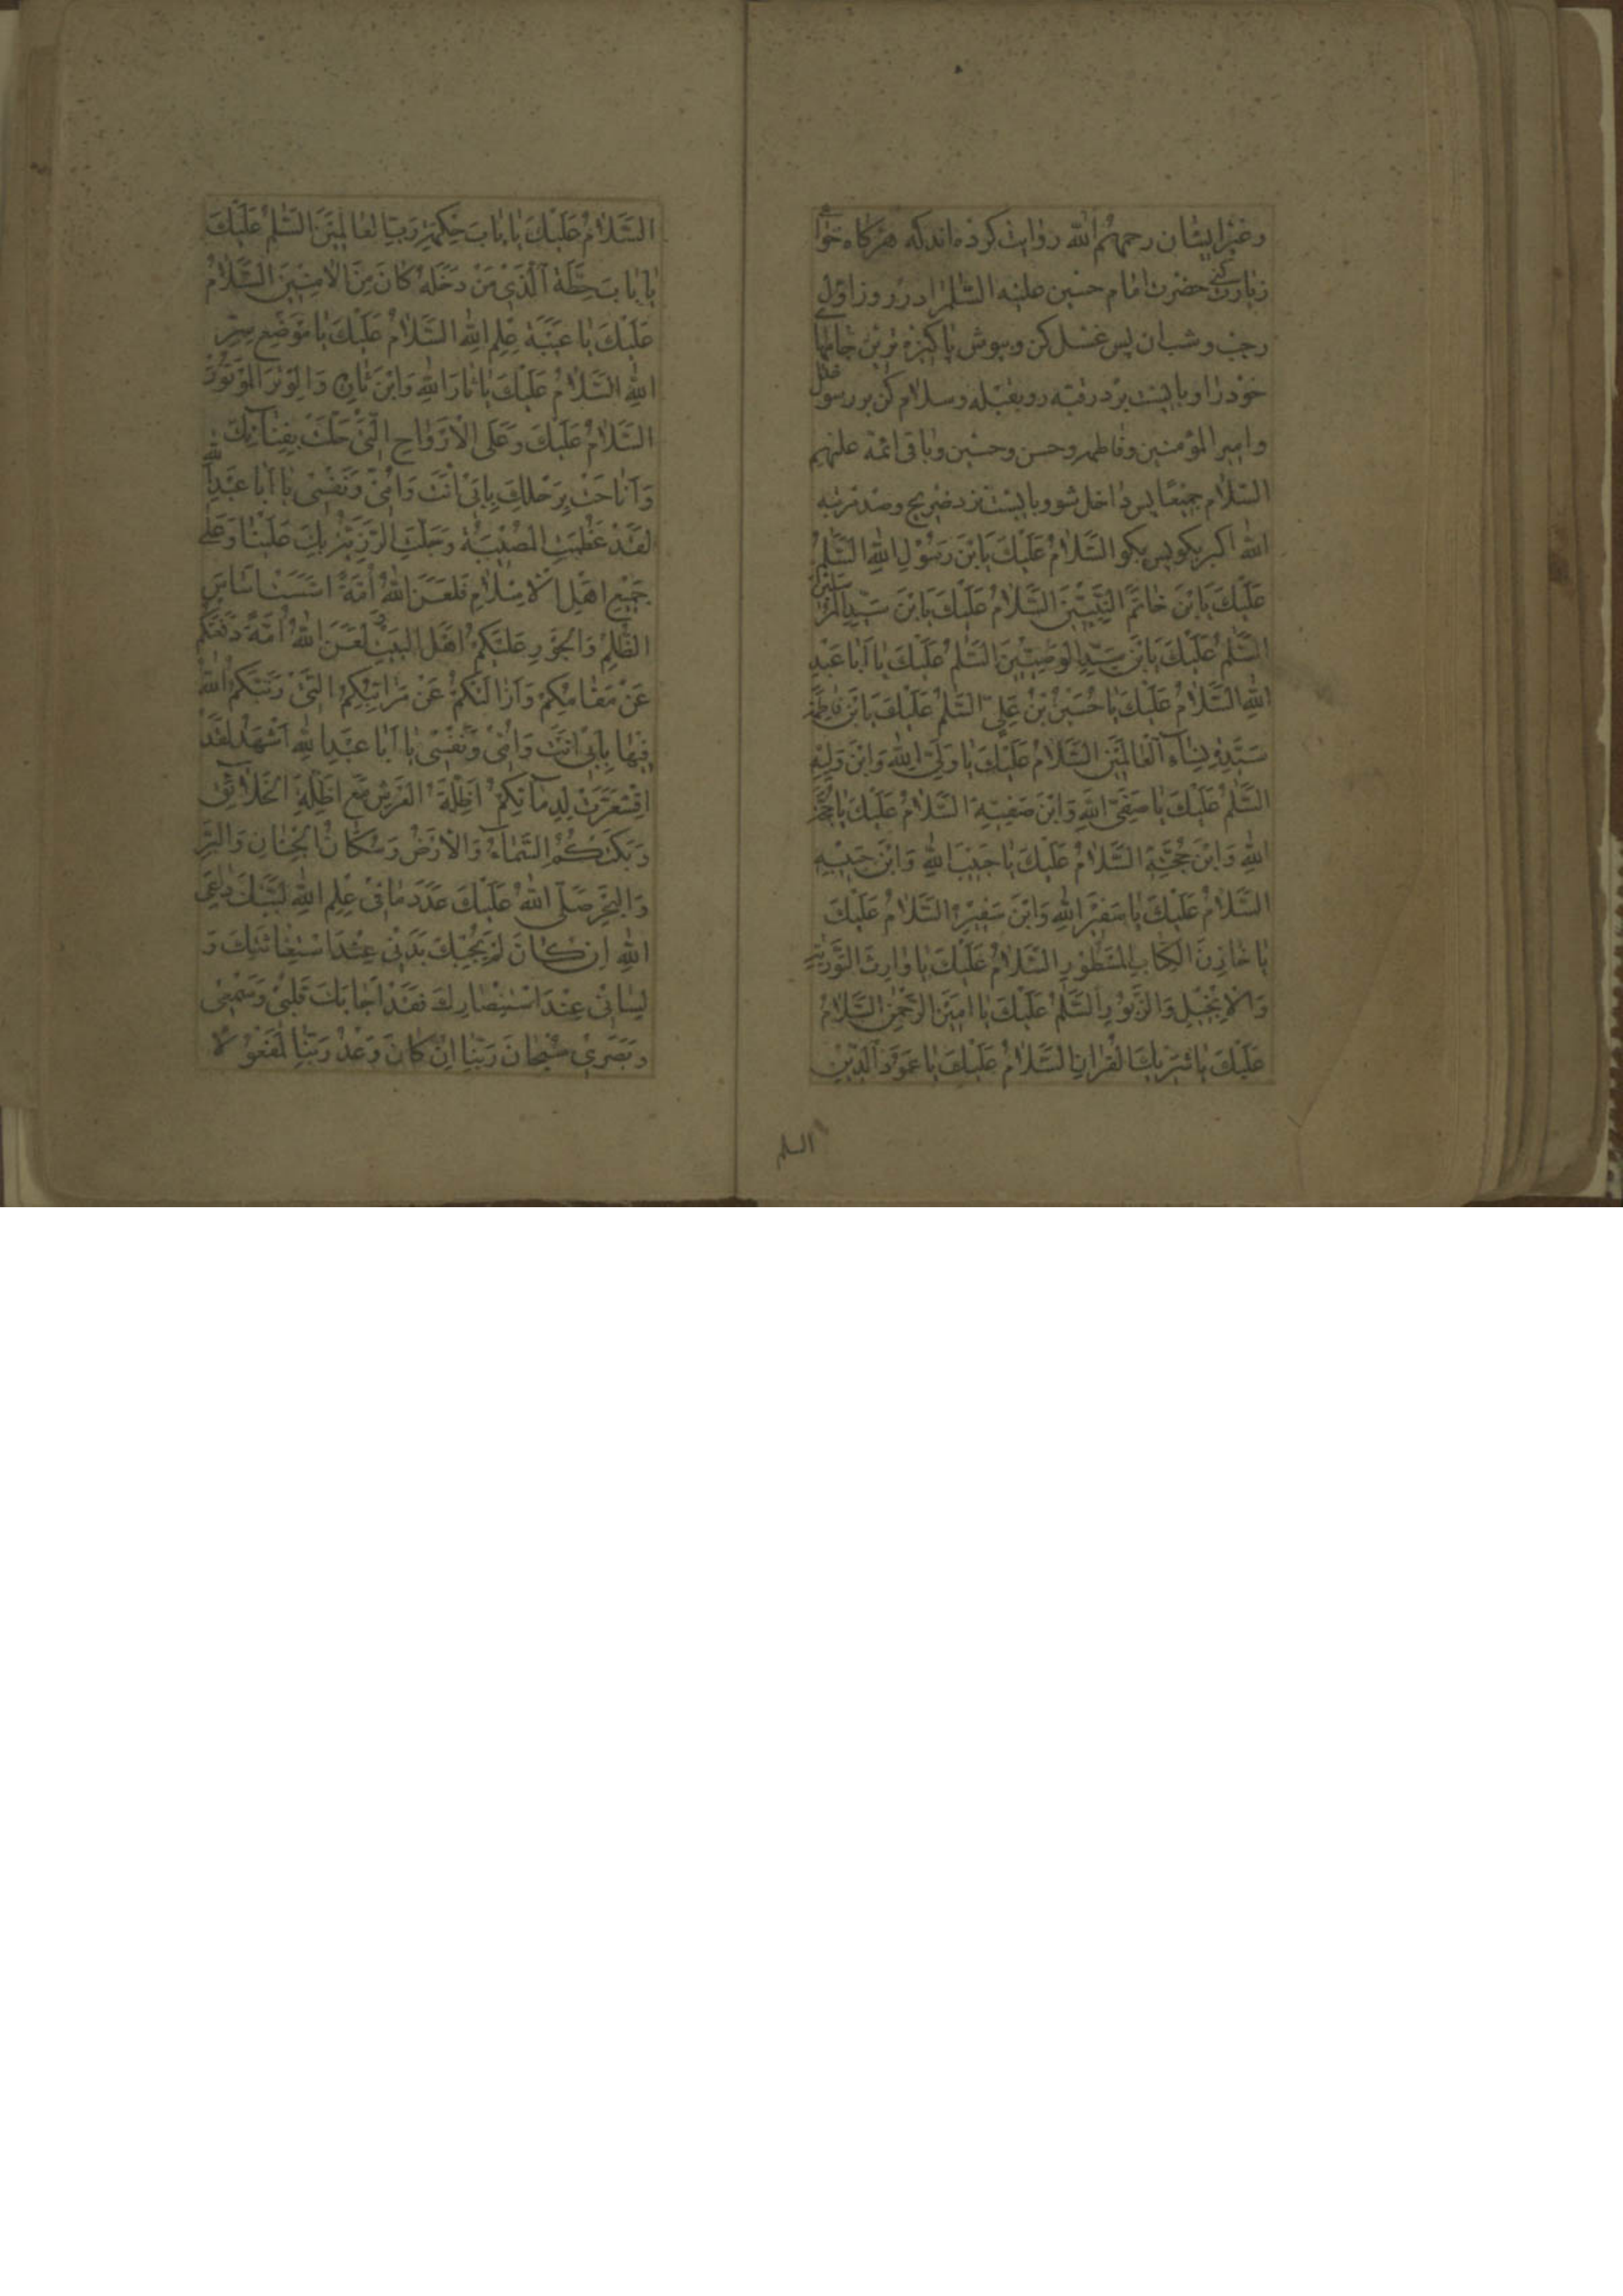 وغیر ایشان رحمهم الله روایت کرده‌اند که هرکاه خواهی
زیارت کنی حضرت امام حسین علیه السّلم را در روز اوّل
رجب و شعبان پس غسل کن و بپوش پاکیزه‌ترین جامهای
خود را و بایست بر در قبّه رو بقبله و سلام کن بر رسول خدا
و امیر المؤمنین و فاطمه و حسن و حسین و باقی ائمّه علیهم
السّلام جمیعًا پس داخل شو و بایست نزد ضریح و صد مرتبه
الله اکبر بکو پس بکو السَّلامُ عَلَیْكَ یَا بْنَ رَسُوْلِ اللهِ السَّلمُ
عَلَیْكَ یَا بْنَ خَاتَمِ النَّبِیّیْنَ السَّلامُ عَلَیْكَ یَا بْنَ سَیِّدِ الْمُرْسَلِیْنَ
السَّلمُ عَلَیْكَ یَا بْنَ سَیِّدِ الْوَصِیّیْنَ السَّلمُ عَلَیْكَ یا اَبا عَبْدِ
اللهِ السَّلامُ عَلَیْكَ یا حُسَیْنُ بْنُ عَلِیٍّ السَّلمُ عَلَیْكَ یَا بْنَ فاطِمَةَ
سَیِّدَةِ نِساءِ الْعالَمیْنَ السَّلامُ عَلَیْكَ یا وَلِیَّ اللهِ وَابْنَ وَلِیِّهِ
السَّلمُ عَلَیْكَ یا صَفِیَّ اللهِ وَابْنَ صَفِیِّهِ السَّلامُ عَلَیْكَ یا حُجَّةَ
اللهِ وَابْنَ حُجَّتِهِ السَّلامُ عَلَیْكَ یا حَبیْبَ اللهِ وَابْنَ حَبیْبِهِ
السَّلامُ عَلَیْكَ یا سَفیْرَ اللهِ وَابْنَ سَفیْرِهِ السَّلامُ عَلَیْكَ
یا خازِنَ الْکِتابِ الْمَسْطُوْرِ السَّلامُ عَلَیْكَ یا وارِثَ التَّوْریةِ
وَالْاِنْجیْلِ وَالزَّبُوْرِ السَّلمُ عَلَیْكَ یا اَمیْنَ الرَّحْمٰنِ السَّلامُ
عَلَیْكَ یا شَریْكَ الْقُرْانِ السَّلامُ عَلَیْكَ یا عَمُوْدَ الدّیْنِ
السلم
السَّلامُ عَلَیْكَ یا بابَ حِکْمَةِ رَبِّ الْعالَمیْنَ السَّلمُ عَلَیْكَ
یا بابَ حِطَّةٍ الَّذیْ مَنْ دَخَلَهُ کانَ مِنَ الْامِنیْنَ السَّلامُ
عَلَیْكَ یا عَیْبَةَ عِلْمِ اللهِ السَّلامُ عَلَیْكَ یا مَوْضِعَ سِرِّ
اللهِ السَّلامُ عَلَیْكَ یا ثارَ اللهِ وَابْنَ ثارِهِ وَالْوِتْرَ الْمَوْتُوْرَ
السَّلامُ عَلَیْكَ وَعَلَی الْاَرْواحِ الَّتیْ حَلَّتْ بِفِنائِكَ
وَاَناخَتْ بِرَحْلِكَ بِاَبیْ اَنْتَ وَاُمّیْ وَنَفْسیْ یا اَبا عَبْدِ الله
لَقَدْ عَظُمَتِ الْمُصیْبَةُ وَجَلَّتِ الرَّزِیَّةُ بِكَ عَلَیْنا وَعَلی
جَمیْعِ اَهْلِ الْاِسْلامِ فَلَعَنَ اللهُ اُمَّةً اَسَّسَتْ اَساسَ
الظُّلْمِ وَالْجَوْرِ عَلَیْکُمْ اَهْلَ الْبَیْتِ وَلَعَنَ اللهُ اُمَّةً دَفَعَتْکُمْ
عَنْ مَقامِکُمْ وَاَزالَتْکُمْ عَنْ مَراتِبِکُمُ الَّتیْ رَتَّبَکُمُ اللهُ
فیْها بِاَبیْ اَنْتَ وَاُمّیْ وَنَفْسیْ یا اَبا عَبْدِ اللهِ اَشْهَدُ لَقَدِ
اقْشَعَرَّتْ لِدِمائِکُمْ اَظِلَّةُ الْعَرْشِ مَعَ اَظِلَّةِ الْخَلائِقِ
وَبَکَتْکُمُ السَّماءُ وَالْاَرْضُ وَسُکّانُ الْجِنانِ وَالْبَرِّ
وَالْبَحْرِ صَلَّی اللهُ عَلَیْكَ عَدَدَ ما فیْ عِلْمِ اللهِ لَبَّیْكَ داعِیَ
اللهِ اِنْ کانَ لَمْ یُجِبْكَ بَدَنیْ عِنْدَ اسْتِغاثَتِكَ وَ
لِسانیْ عِنْدَ اسْتِنْصارِكَ فَقَدْ اَجابَكَ قَلْبیْ وَسَمْعیْ
وَبَصَریْ سُبْحانَ رَبِّنا اِنْ کانَ وَعْدُ رَبِّنا لَمَفْعُوْلًا